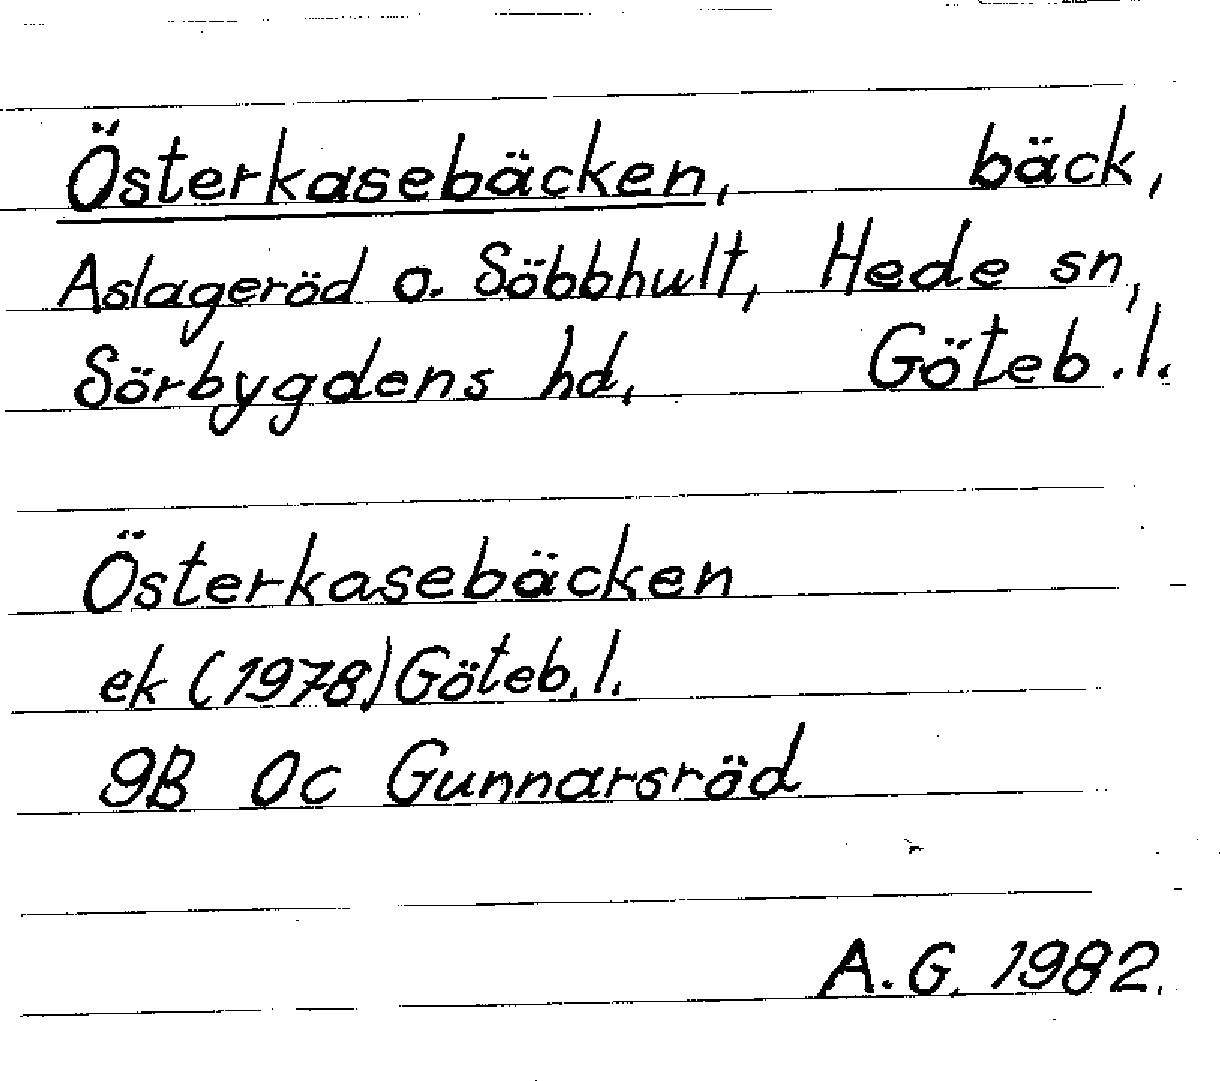 Österkasebäcken, bäck,
Aslageröd o. Söbbhult, Hede sn,
Sörbygdens hd, Göteb.l.
Österkasebäcken
ek (1978) Göteb.l.
9B 0c Gunnarsröd
A.G. 1982.